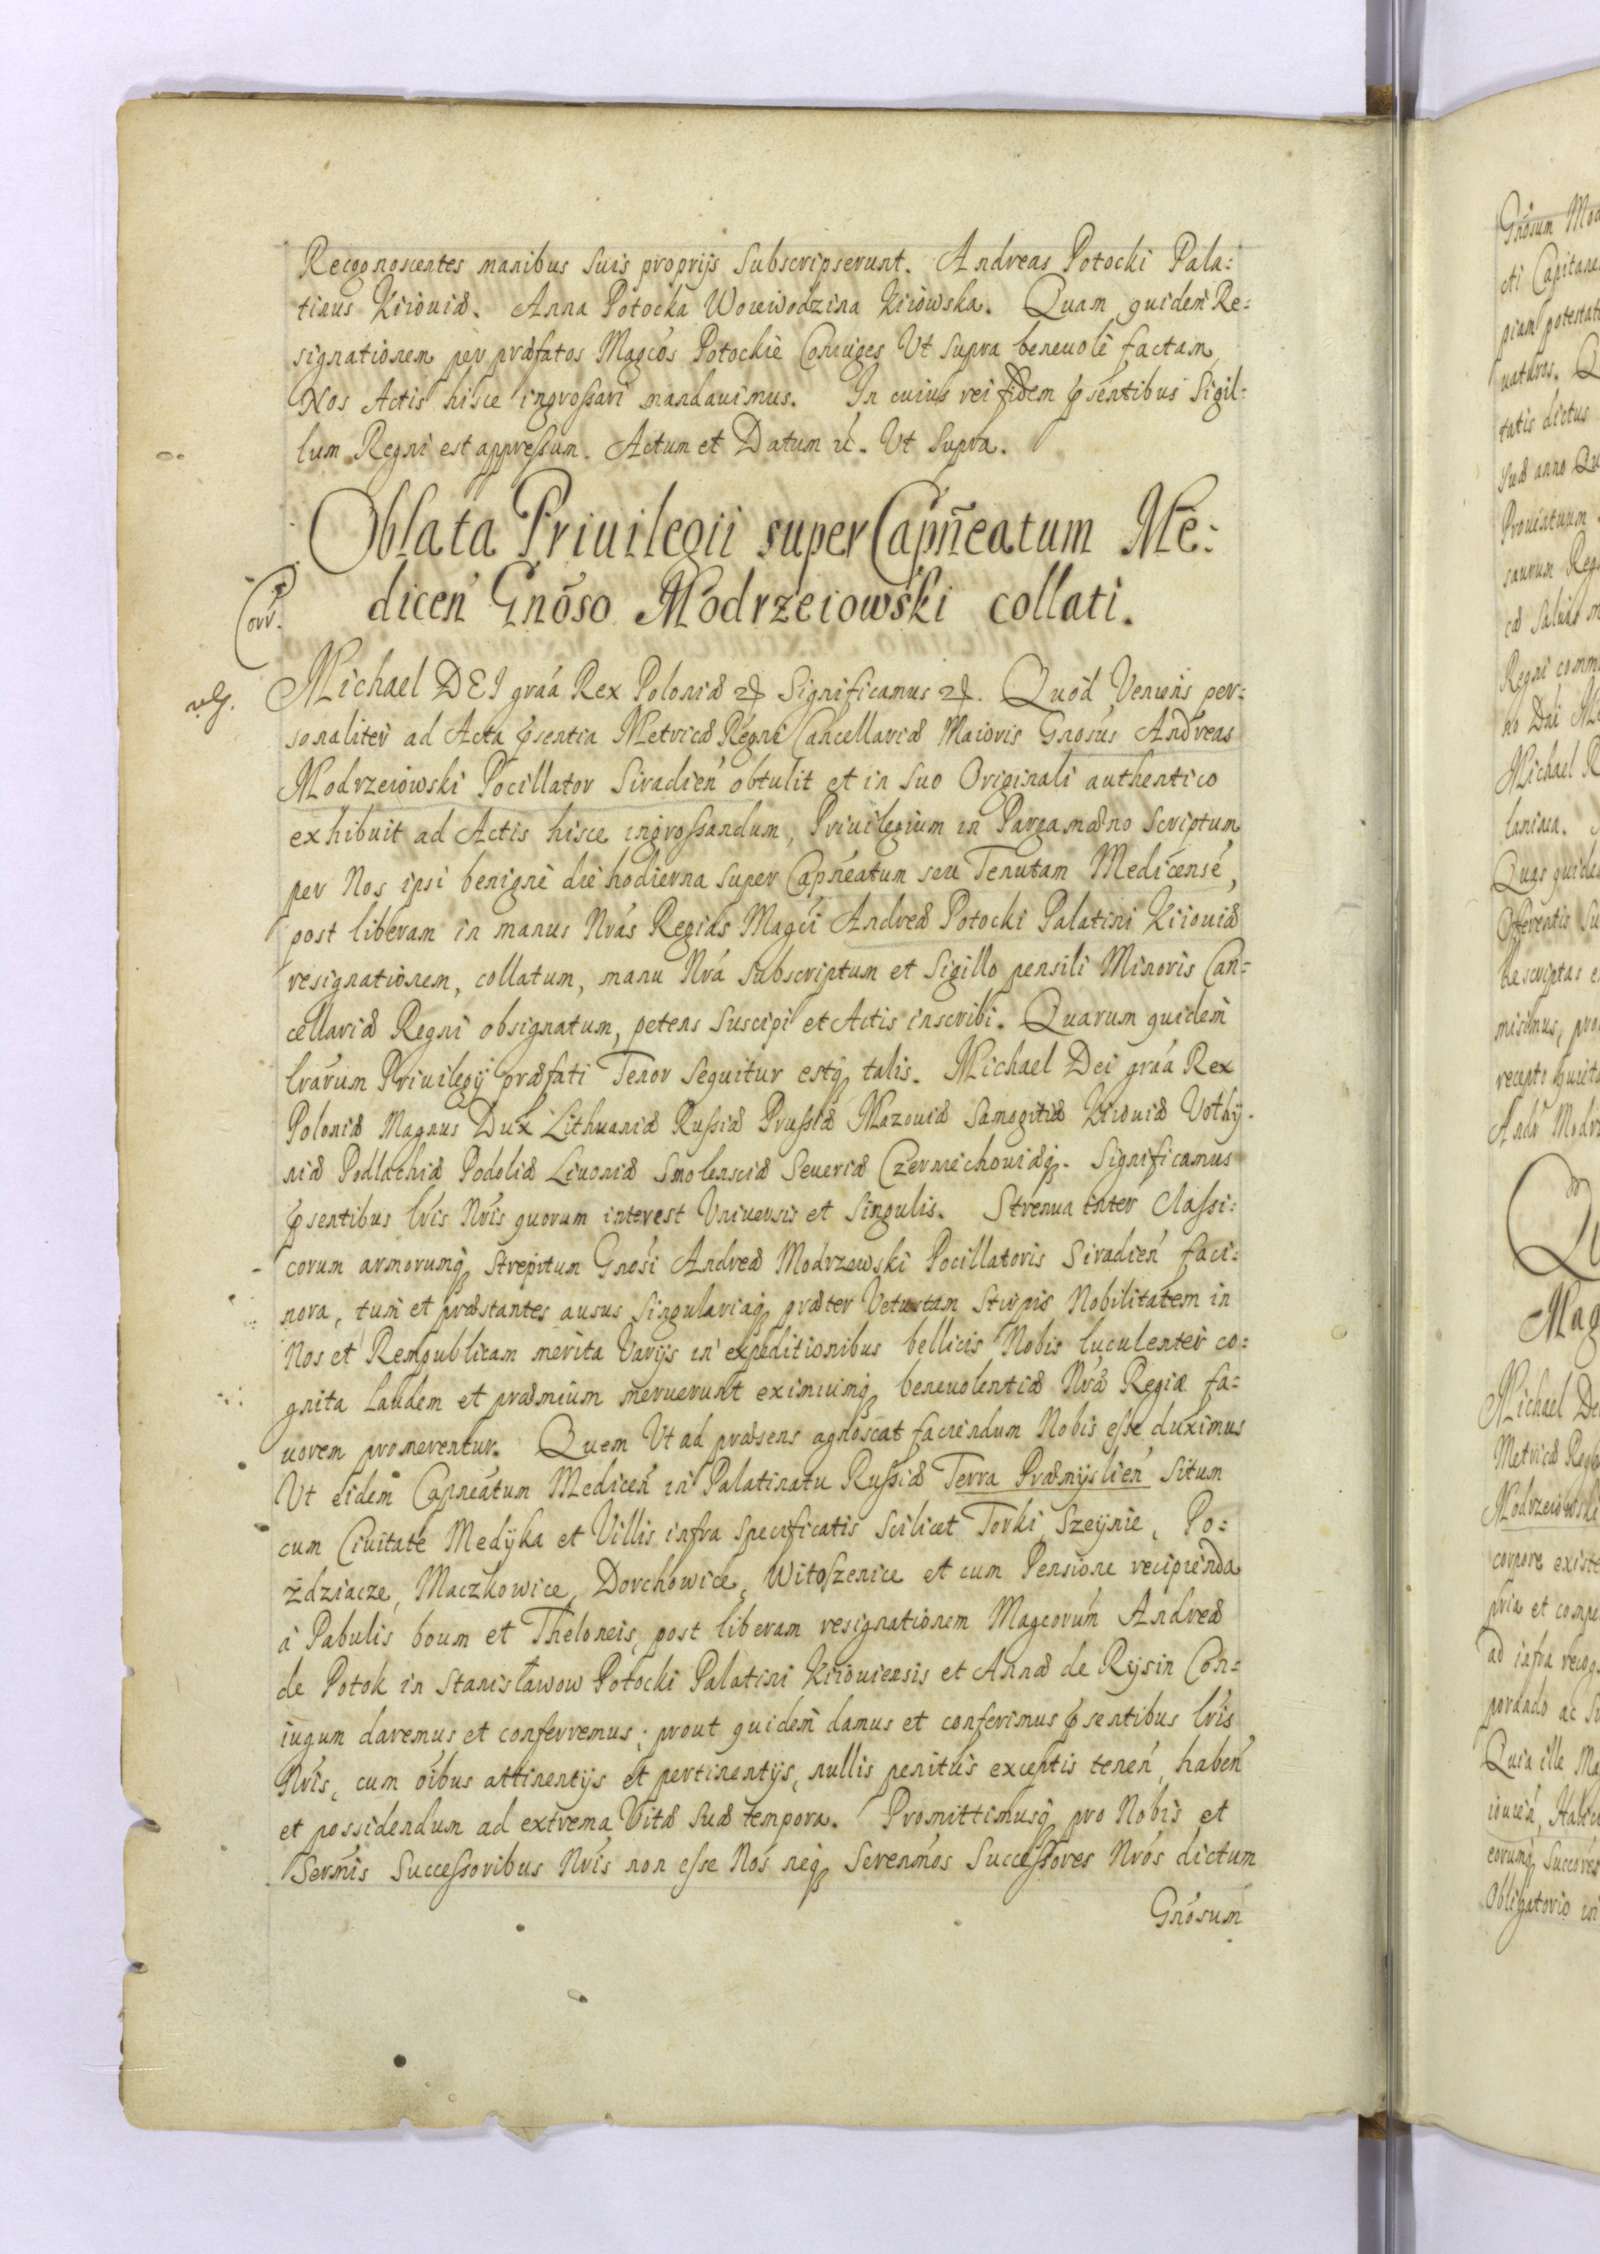 Recognoscentes manibus suis proprijs subscripserunt. Andreas Potocki Pala:
tinus Kiiouiæ. Anna Potocka Woiewodzina Kiiowska. Quam quidem Re:
signationem per præfatos Magcos Potockie Coniuges Ut supra beneuolè factam
Nos Actis hisce ingrossari mandauimus. In cuius rei fidem pſentibus Sigil:
lum Regni est appressum. Actum et Datum &c. Ut Supra.
Oblata Priuilegii super Capñeatum Me:
diceń Gnõso Modrzeiowski collati.
Corr.
Michael DEI graá Rex Poloniæ &c Significamus &c. Quod Veniens per:
sonaliter ad Acta pſentia Metricæ Regni Cancellariæ Maioris Gnosus Andreas
Modrzeiowski Pocillator Siradień obtulit et in suo Originali authentico
exhibuit ad Actis hisce ingrossandum, Priuilegium in Pargamæno Scriptum
per Nos ipsi benignè die hodierna super Capñeatum seu Tenutam Medicensé,
post liberam in manus Nrás Regias Magci Andreæ Potocki Palatini Kiiouiæ
resignationem, collatum, manu Nrá subscriptum et Sigillo pensili Minoris Can:
cellariæ Regni obsignatum, petens suscipi et Actis inscribi. Quarum quidem
lrárum Priuilegij præfati Tenor Sequitur estq talis. Michael Dei graá Rex
Poloniæ Magnus Dux Lithuaniæ Russiæ Prussiæ Mazouiæ Samogitiæ Kiiouiæ Volhy:
niæ Podlachiæ Podoliæ Liuoniæ Smolensciæ Seueriæ Czerniechouiæq. Significamus
pſentibus lrís Nrís quorum interest Vniuersis et Singulis. Strenua inter Classi:
corum armorumq strepitum Gnosi Andreæ Modrzewski Pocillatoris Siradień faci:
nora, tum et præstantes ausus singulariaq præter Vetustam Stirpis Nobilitatem in
Nos et Rempublicam merita Varijs in expeditionibus bellicis Nobis luculenter co:
gnita laudem et præmium meruerunt eximiumq beneuolentiæ Nræ Regiæ fa:
uorem promerentur. Quem Ut ad præsens agnoscat faciendum Nobis esse duximus
Ut eidem Capneátum Mediceń in Palatinatu Russiæ Terra Præmyslień Situm
cum Ciuitate Medyka et Villis infra specificatis scilicet Torki, Szeynie, Po:
żdziacze, Maczkowice, Dorchowice, Witoszenice et cum Pensione recipienda
à Pabulis boum et Theloneis, post liberam resignationem Magcorum Andreæ
de Potok in Stanisławow Potocki Palatini Kiiouiensis et Annæ de Rysin Con:
iugum daremus et conferremus; prout quidem damus et conferimus pſentibus lrís
Nrís, cum oibus attinentijs et pertinentijs, nullis penitus exceptis teneń, habeń
et possidendum ad extrema Vitæ suæ tempora. Promittimusq pro Nobis et
Sermis Successoribus Nrís non esse Nos neq Serenmos Successores Nrós dictum
Gnósum